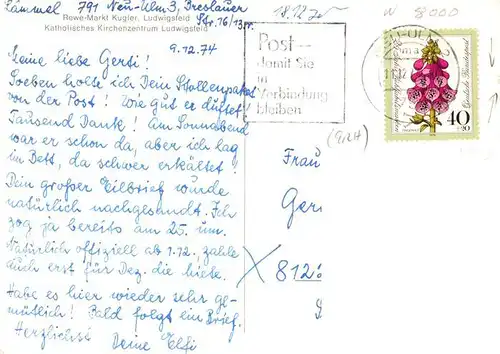 Lämmel 791 Neu-Ulm 3, Breslauer
Str. 16/13
Rewe-Markt Kugler, Ludwigsfeld
Katholisches Kirchenzentrum Ludwigsfeld
9.12.74
Meine liebe Gerti!
Soeben holte ich Dein Stollenpaket
von der Post! Wie gut er duftet
Tausend Dank! Am Sonnabend
war er schon da, aber ich lag
im Bett, da schwer erkältet!
Dein großer Eilbrief wurde
natürlich nachgesandt. Ich
zog ja bereits am 25. um.
Natürlich offiziell ab 1.12. zahle
auch erst für Dez. die Miete.
Habe es hier wieder sehr ge-
mütlich! Bald folgt ein Brief.
Herzlichst Deine Elfi
Post -
damit Sie
in
Verbindung
bleiben
Deutsche Bundespost
40
+20
Frau
Geri
812